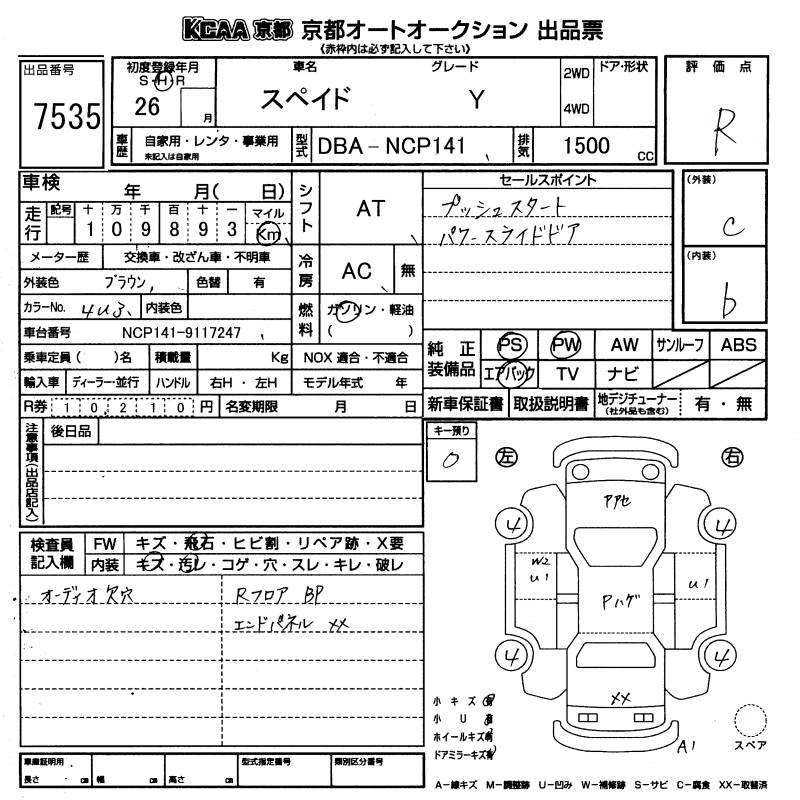 KCAA 京都 京都オートオークション 出品票
《赤枠内は必ず記入して下さい》
出品番号
7535
初度登録年月
S・H・R
26
月
車名
スペイド
グレード
Y
2WD
4WD
ドア・形状
評価点
R
車歴
自家用・レンタ・事業用
未記入は自家用
型式
DBA-NCP141
排気
1500
cc
車検
年 月( 日)
走行
記号
十 万 千 百 十 一
1 0 9 8 9 3
マイル
Km
メーター歴
交換車・改ざん車・不明車
外装色
ブラウン
色替
有
カラーNo.
4U3
内装色
車台番号
NCP141-9117247
乗車定員( )名
積載量
Kg
輸入車
ディーラー・並行
ハンドル
右H・左H
R券
10,210円
名変期限
月 日
シフト
AT
冷房
AC
無
燃料
ガソリン・軽油
( )
NOX 適合・不適合
モデル年式 年
セールスポイント
プッシュスタート
パワースライドドア
(外装)
C
(内装)
b
純正装備品
PS
PW
AW
サンルーフ
ABS
エアバック
TV
ナビ
新車保証書
取扱説明書
地デジチューナー
(社外品も含む)
有・無
注意事項(出品店記入)
後日品
キー預り
0
左
右
検査員記入欄
FW
キズ・飛石・ヒビ割・リペア跡・X要
内装
キズ・汚レ・コゲ・穴・スレ・キレ・破レ
オーディオ欠穴
Rフロア BP
エンドパネル XX
アアセ
4
4
W2
U1
Pハゲ
U1
4
4
XX
A1
スペア
小キズ有
小U有
ホイールキズ有
ドアミラーキズ有
車庫証明用
長さ cm
幅 cm
高さ cm
型式指定番号
類別区分番号
A-線キズ M-調整跡 U-凹み W-補修跡 S-サビ C-腐食 XX-取替済